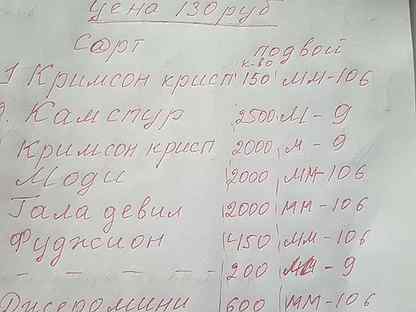 Цена 130 руб
С@рт подвой
к-во
1 Кримсон крисп 150 ММ-106
2. Камспур 2500 М-9
Кримсон крисп 2000 м-9
Моди 2000 ММ-106
Гала девил 2000 ММ-106
Фуджион 450 ММ-106
- - - - - 200 М-9
Джеромини 600 ММ-106